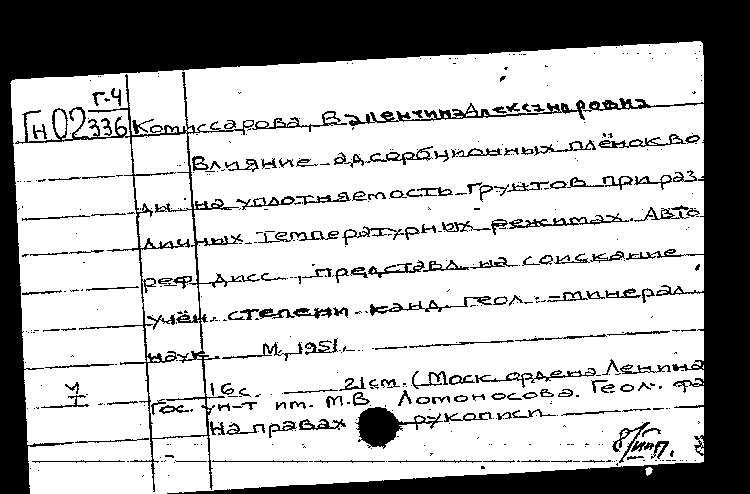 Г-4
Гн02 336 Комиссарова, Валентина Александровна
Влияние адсорбционных плёнок во
ды на уплотняемость грунтов при раз
личных температурных режимах. Авто
реф. дисс., представл. на соискание
учён. степени канд. геол.-минерал.
наук. М., 1951.
16 с. 21 см. (Моск. ордена Ленина
Гос. ун-т им. М.В. Ломоносова. Геол. фа
На правах рукописи